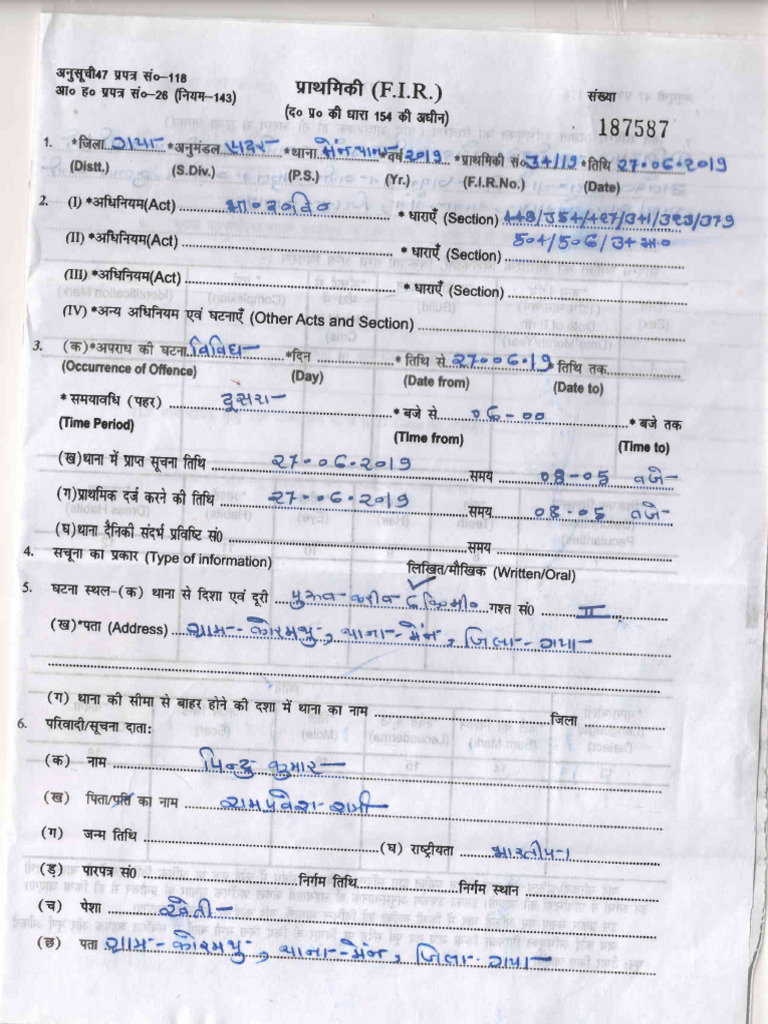 अनुसूची47 प्रपत्र सं०-118
आ० ह० प्रपत्र सं०-26 (नियम-143)
प्राथमिकी (F.I.R.)
(द० प्र० की धारा 154 की अधीन)
संख्या
187587
1. *जिला गया *अनुमंडल सदर *थाना मेन थाना *वर्ष 2019 *प्राथमिकी सं० 34/19 *तिथि 27.06.2019
(Distt.) (S.Div.) (P.S.) (Yr.) (F.I.R.No.) (Date)
2. (I) *अधिनियम(Act) भा०द०वि० * धाराएँ (Section) 448/354/427/341/323/379
504/506/34 भा०
(II) *अधिनियम(Act) * धाराएँ (Section)
(III) *अधिनियम(Act) * धाराएँ (Section)
(IV) *अन्य अधिनियम एवं घटनाएँ (Other Acts and Section)
3. (क)*अपराध की घटना विविध *दिन * तिथि से 27.06.19 * तिथि तक
(Occurrence of Offence) (Day) (Date from) (Date to)
* समयावधि (पहर) दूसरा * बजे से 06-00 * बजे तक
(Time Period) (Time from) (Time to)
(ख)थाना में प्राप्त सूचना तिथि 27.06.2019 समय 08-05 बजे
(ग)प्राथमिक दर्ज करने की तिथि 27.06.2019 समय 08-05 बजे
(घ)थाना दैनिकी संदर्भ प्रविष्टि सं0 समय
4. सचूना का प्रकार (Type of information) लिखित/मौखिक (Written/Oral)
5. घटना स्थल-(क) थाना से दिशा एवं दूरी पुरुब करीब 6 कि०मी० गश्त सं0 II
(ख)*पता (Address) ग्राम- कोरमथु, थाना- मेन, जिला- गया
(ग) थाना की सीमा से बाहर होने की दशा में थाना का नाम जिला
6. परिवादी/सूचना दाता:
(क) नाम पिन्टु कुमार
(ख) पिता/पति का नाम रामप्रवेश शर्मा
(ग) जन्म तिथि (घ) राष्ट्रीयता भारतीय
(ड़) पारपत्र सं0 निर्गम तिथि निर्गम स्थान
(च) पेशा खेती
(छ) पता ग्राम- कोरमथु, थाना- मेन, जिला- गया